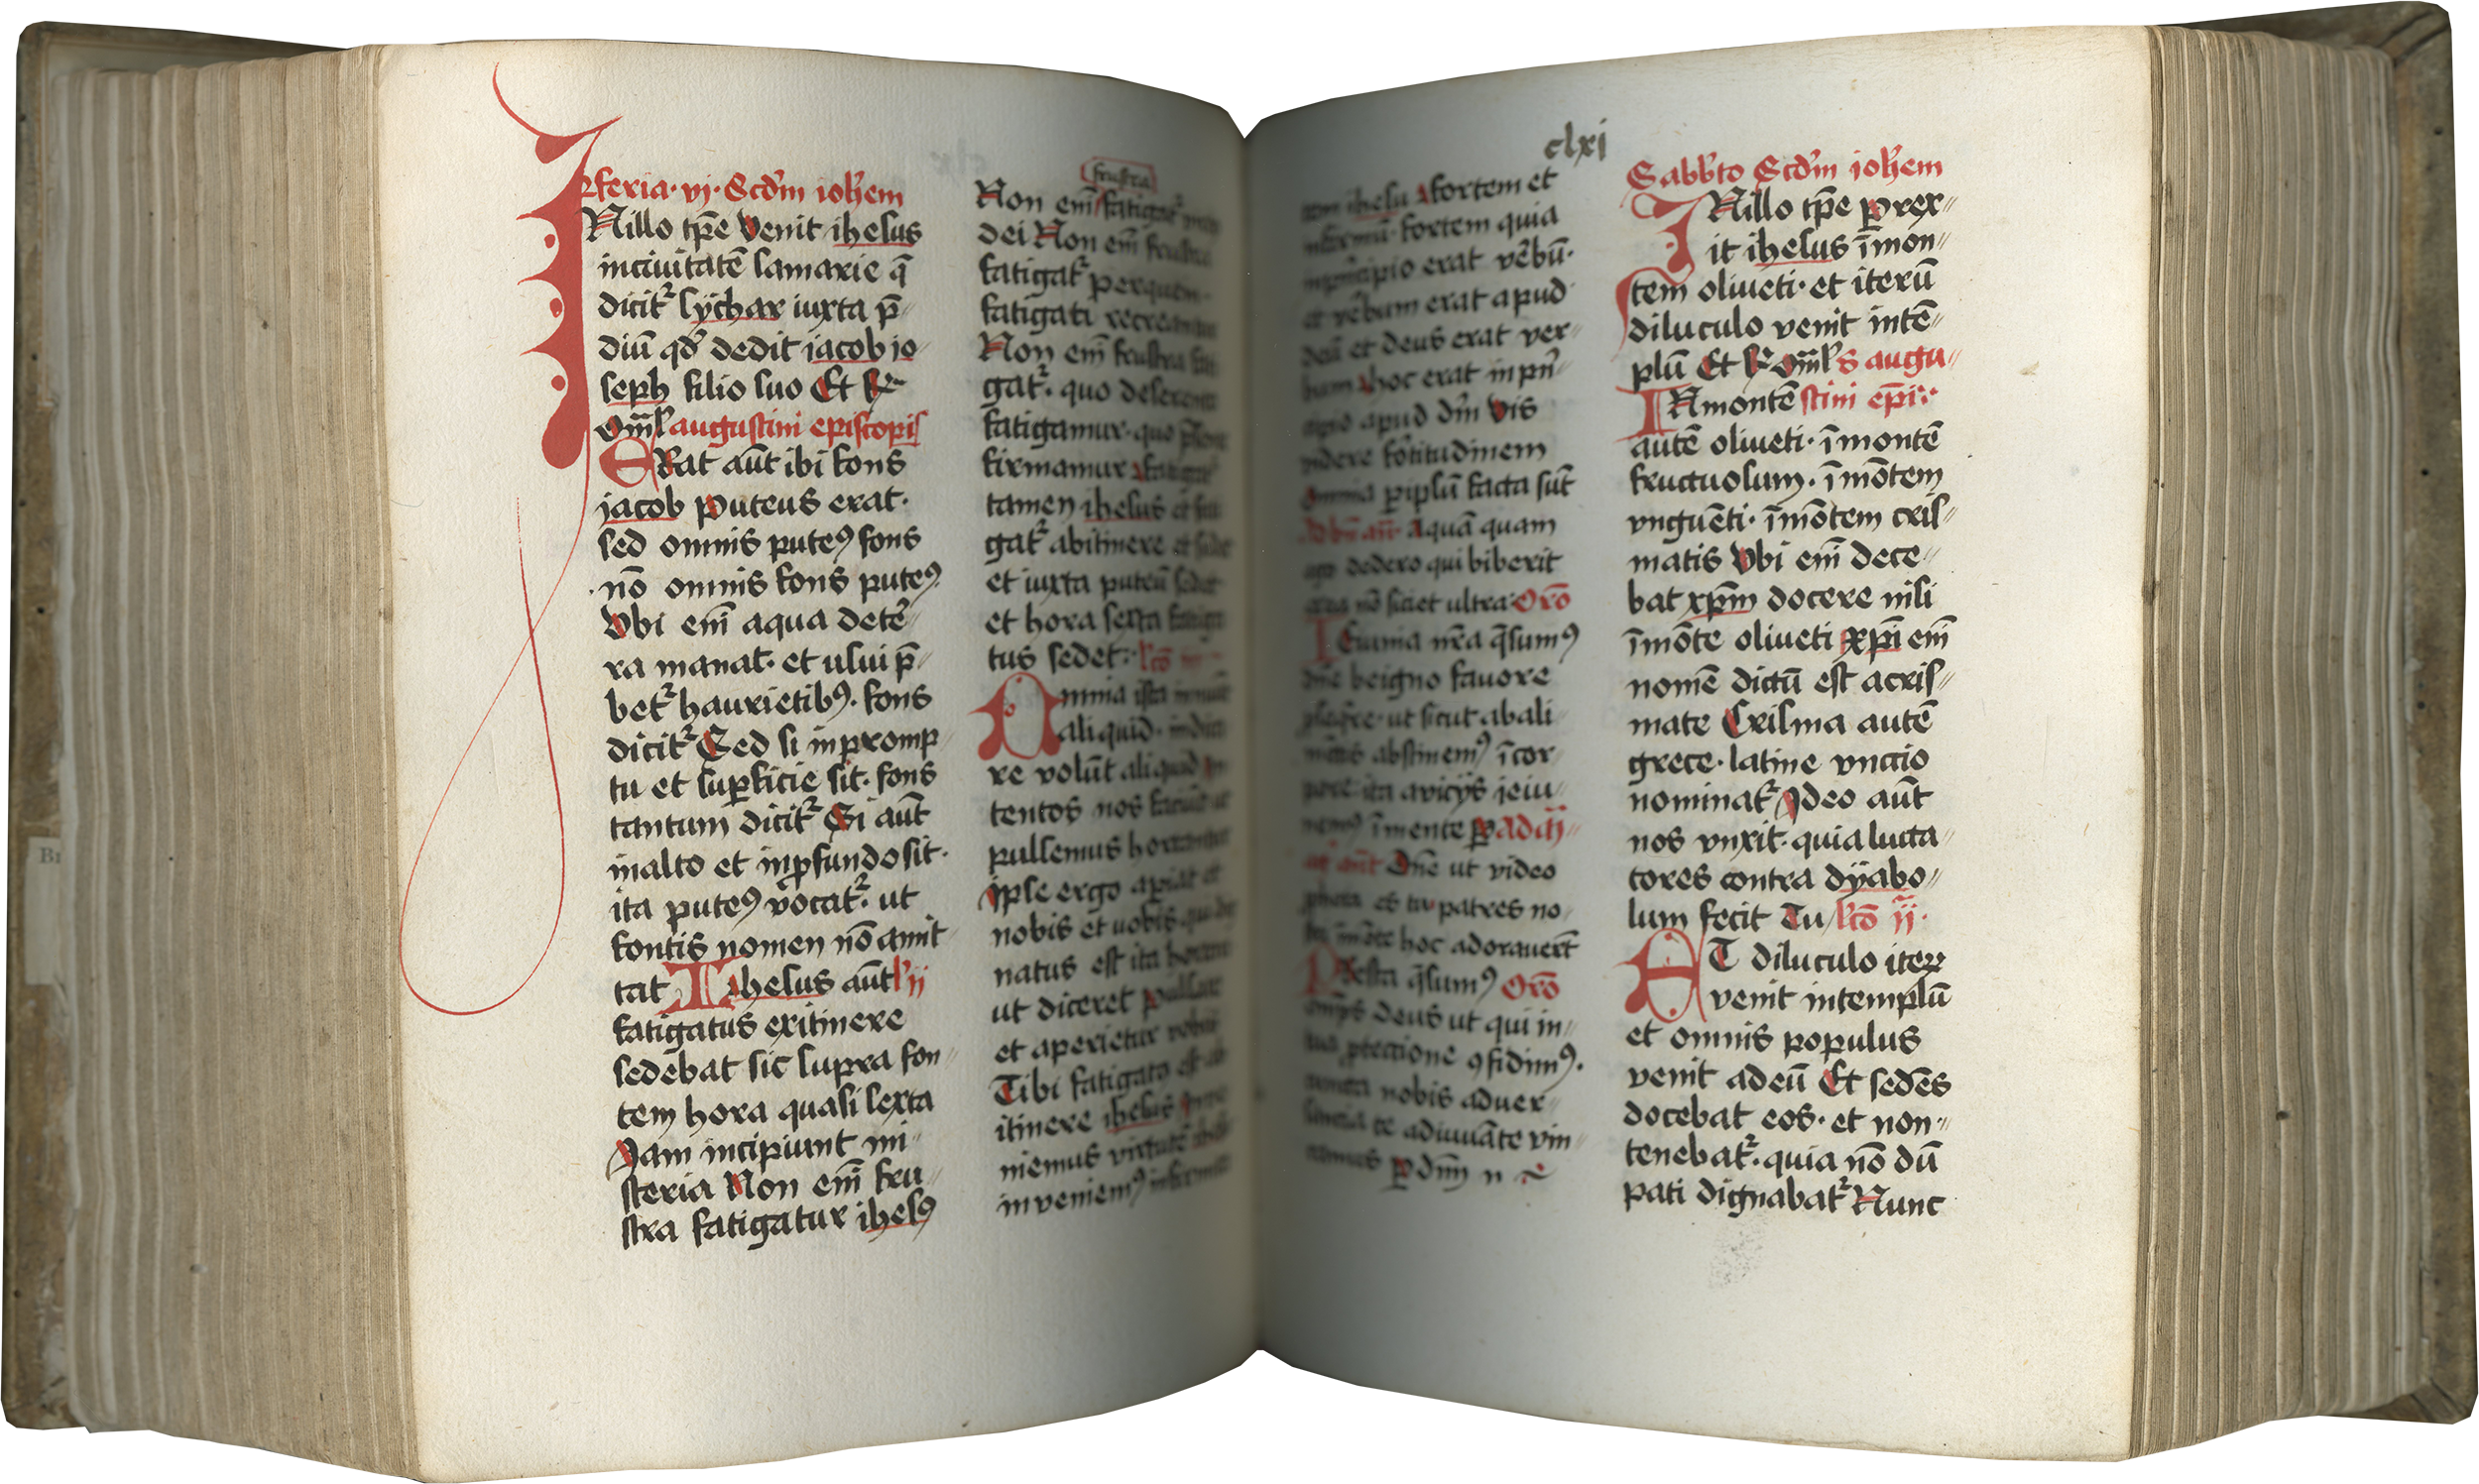 feria · vj · Scdm ioh̄em
IN illo tp̄e Venit ihesus
inciuitatē samarie q̄
dicitr̉ sychar iuxta p̄〃
diū qd̄ dedit jacob jo〃
seph filio suo Et
Om̄l augustini episcopis
ERat aūt ibi fons
jacob Puteus erat ·
sed omnis puteꝰ fons
nō omnis fons puteꝰ
Vbi em̄ aqua de tēr〃
ra manat · et usui p̄〃
betr̉ haurietibꝰ · fons
dicitr̉ Sed si inpromp〃
tu et suꝑficie sit · fons
tantum dicitr̉ Si aūt
inalto et inꝓfundo sit ·
ita puteꝰ vocatr̉ · ut
fontis nomen nō amit〃
tat Ihesus aūt l ij
fatigatus exitinere
sedebat sic supra fon〃
tem hora quasi sexta
Jam incipiunt mi〃
steria Non em̄ fru〃
stra fatigatur ihesꝰ
frustra
Non em̄ fatigatr̉
dei Non em̄ frustra
fatigatr̉ per quem
fatigati recreantur
Non em̄ frustra fati
gatr̉ · quo deserente
fatigamur · quo
firmamur fatigatr̉
tamen ihesus et fati
gatr̉ abitinere et sedet
et iuxta puteū sedet
et hora sexta fatiga
tus sedet · lcō iij
Omnia ista innuūt
aliquid · indica
re volūt aliquid In
tentos nos faciūt ut
pulsemus hortantur
Ipse ergo apiat et
nobis et uobis qui dig
natus est ita hortari
ut diceret Pulsate
et aperietur vobis
Tibi fatigato est ab
itinere ihesus Inve
niemus virtutē ihesū
inveniemꝰ infirmū
clxj
ihesu fortem et
infirmū · fortem quia
inprincipio erat verbū ·
et verbum erat apud
deū et deus erat ver〃
bum hoc erat inpn̄〃
cipio apud dm̄ Vis
videre fortitudinem
omnia ꝑipsū facta sūt
Aquā quam
ego dedero qui biberit
ex ea nō siciet ultra Orō
Ieiunia nr̄a q̄sumꝰ
dn̄e beigno fauore
ꝓseqre · ut sicut abali〃
mētis abstinemꝰ īcor〃
pore ita avicijs jeiu〃
nemꝰ īmente ꝑ
Dn̄e ut video
pheta es tu patres no〃
hoc adorauerūt
Presta q̄sumꝰ Orō
deus ut qui in〃
tua ꝓtectione ꝯfidimꝰ ·
cuncta nobis aduer〃
sancia te adiuuāte vin〃
camus ꝑ dm̄ n
Sabb̄to Scdm ioh̄em
IN illo tp̄e Prex〃
it ihesus īmon〃
tem oliueti · et iterū
diluculo venit intē〃
plū Et Om̄ls augu〃
INmontē stini ep̄i ·
autē oliueti · īmontē
fructuosum · īmōtem
vnguēti · īmōtem cris〃
matis Vbi em̄ dece〃
bat xp̄m docere nisi
īmōte oliueti xp̄i em̄
nomē dictū est acris〃
mate Crisma autē
grece · latine vnctio
nominatr̉ Ideo aūt
nos vnxit · quia lucta〃
tores contra dyabo〃
lum fecit Tu lcō ij ·
ET diluculo iteꝝ
venit intemplū
et omnis populus
venit adeū Et sedēs
docebat eos · et non〃
tenebatr̉ · quia nō dū
pati dignabatr̉ Nunc